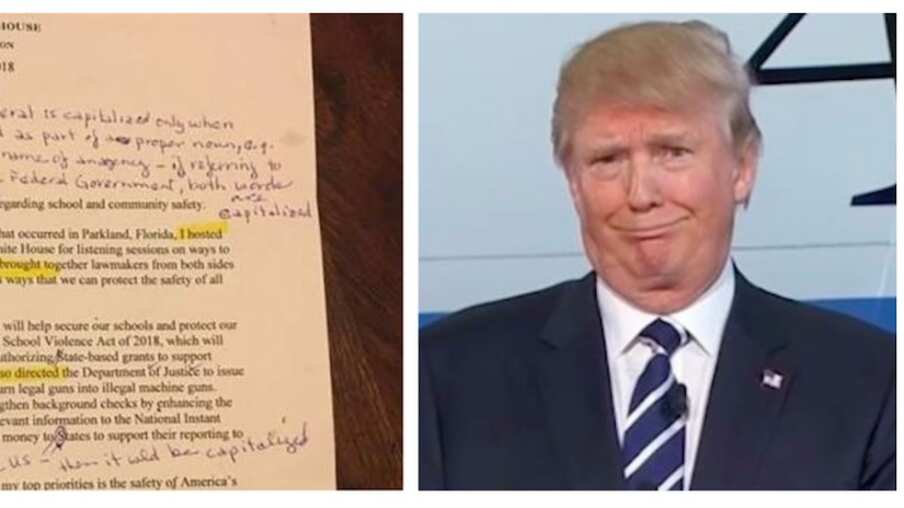 HOUSE
ON
18
eral is capitalized only when
d as part of a proper noun, e.g.
name of an agency - if referring to
Federal Government, both words
are
capitalized
egarding school and community safety.
hat occurred in Parkland, Florida, I hosted
ite House for listening sessions on ways to
brought together lawmakers from both sides
s ways that we can protect the safety of all
will help secure our schools and protect our
School Violence Act of 2018, which will
uthorizing State-based grants to support
so directed the Department of Justice to issue
urn legal guns into illegal machine guns.
gthen background checks by enhancing the
evant information to the National Instant
money to States to support their reporting to
US - then it wld be capitalized
my top priorities is the safety of America's
A